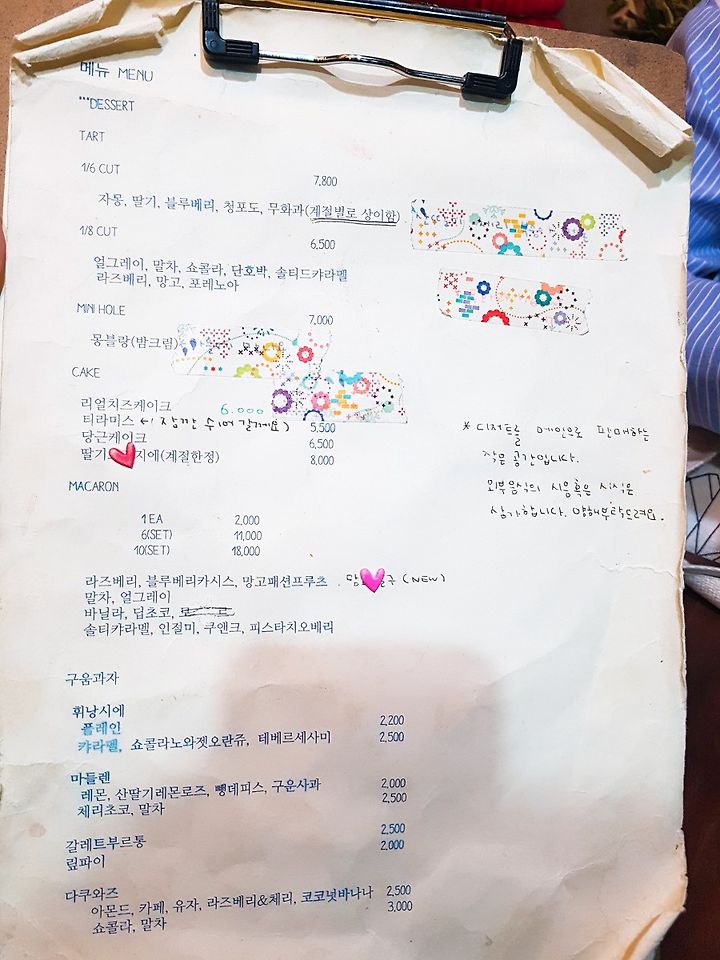 메뉴 MENU
***DESSERT
TART
1/6 CUT
7,800
자몽, 딸기, 블루베리, 청포도, 무화과(계절별로 상이함)
1/8 CUT
6,500
얼그레이, 말차, 쇼콜라, 단호박, 솔티드캬라멜
라즈베리, 망고, 포레노아
MINI HOLE
7,000
몽블랑(밤크림)
CAKE
리얼치즈케이크 6.000
티라미스 ←! 잠깐 쉬어갈게요) 5,500
당근케이크 6,500
딸기 지에(계절한정) 8,000
* 디저트를 메인으로 판매하는
작은 공간입니다.
외부음식의 시음혹은 시식은
삼가합니다. 양해부탁드려요.
MACARON
1 EA 2,000
6(SET) 11,000
10(SET) 18,000
라즈베리, 블루베리카시스, 망고패션프루츠 . (NEW)
말차, 얼그레이
바닐라, 딥초코,
솔티캬라멜, 인절미, 쿠앤크, 피스타치오베리
구움과자
휘낭시에
플레인 2,200
캬라멜, 쇼콜라노와젯오란쥬, 테베르세사미 2,500
마들렌
레몬, 산딸기레몬로즈, 뺑데피스, 구운사과 2,000
체리초코, 말차 2,500
갈레트부르통 2,500
맆파이 2,000
다쿠와즈
아몬드, 카페, 유자, 라즈베리&체리, 코코넛바나나 2,500
쇼콜라, 말차 3,000